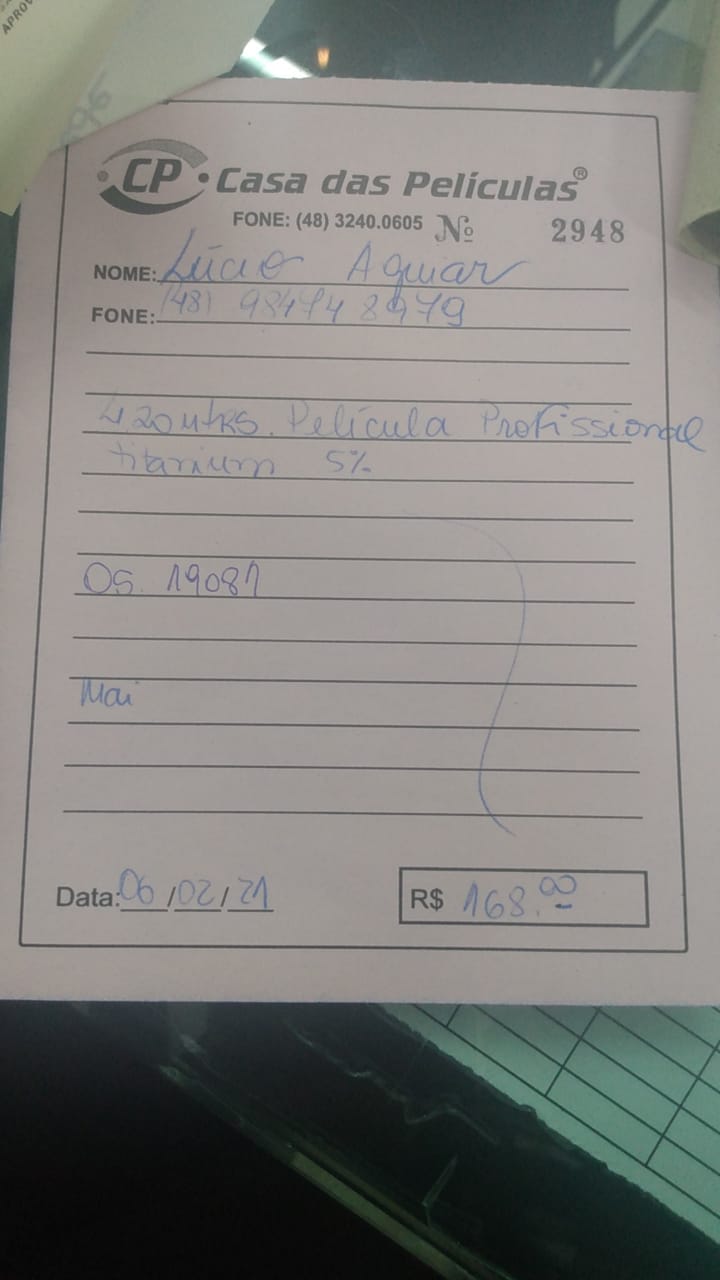 APROV
CP Casa das Películas®
FONE: (48) 3240.0605 Nº 2948
NOME: Lúcio Aguiar
FONE: (48) 98474 8979
4,20 mtrs. Película Profissional
titanium 5%
OS. 19081
Mai
Data: 06/02/21 R$ 168.00